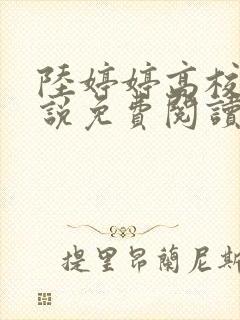 陸婷婷高校
説免費閱讀
提里昂蘭尼斯